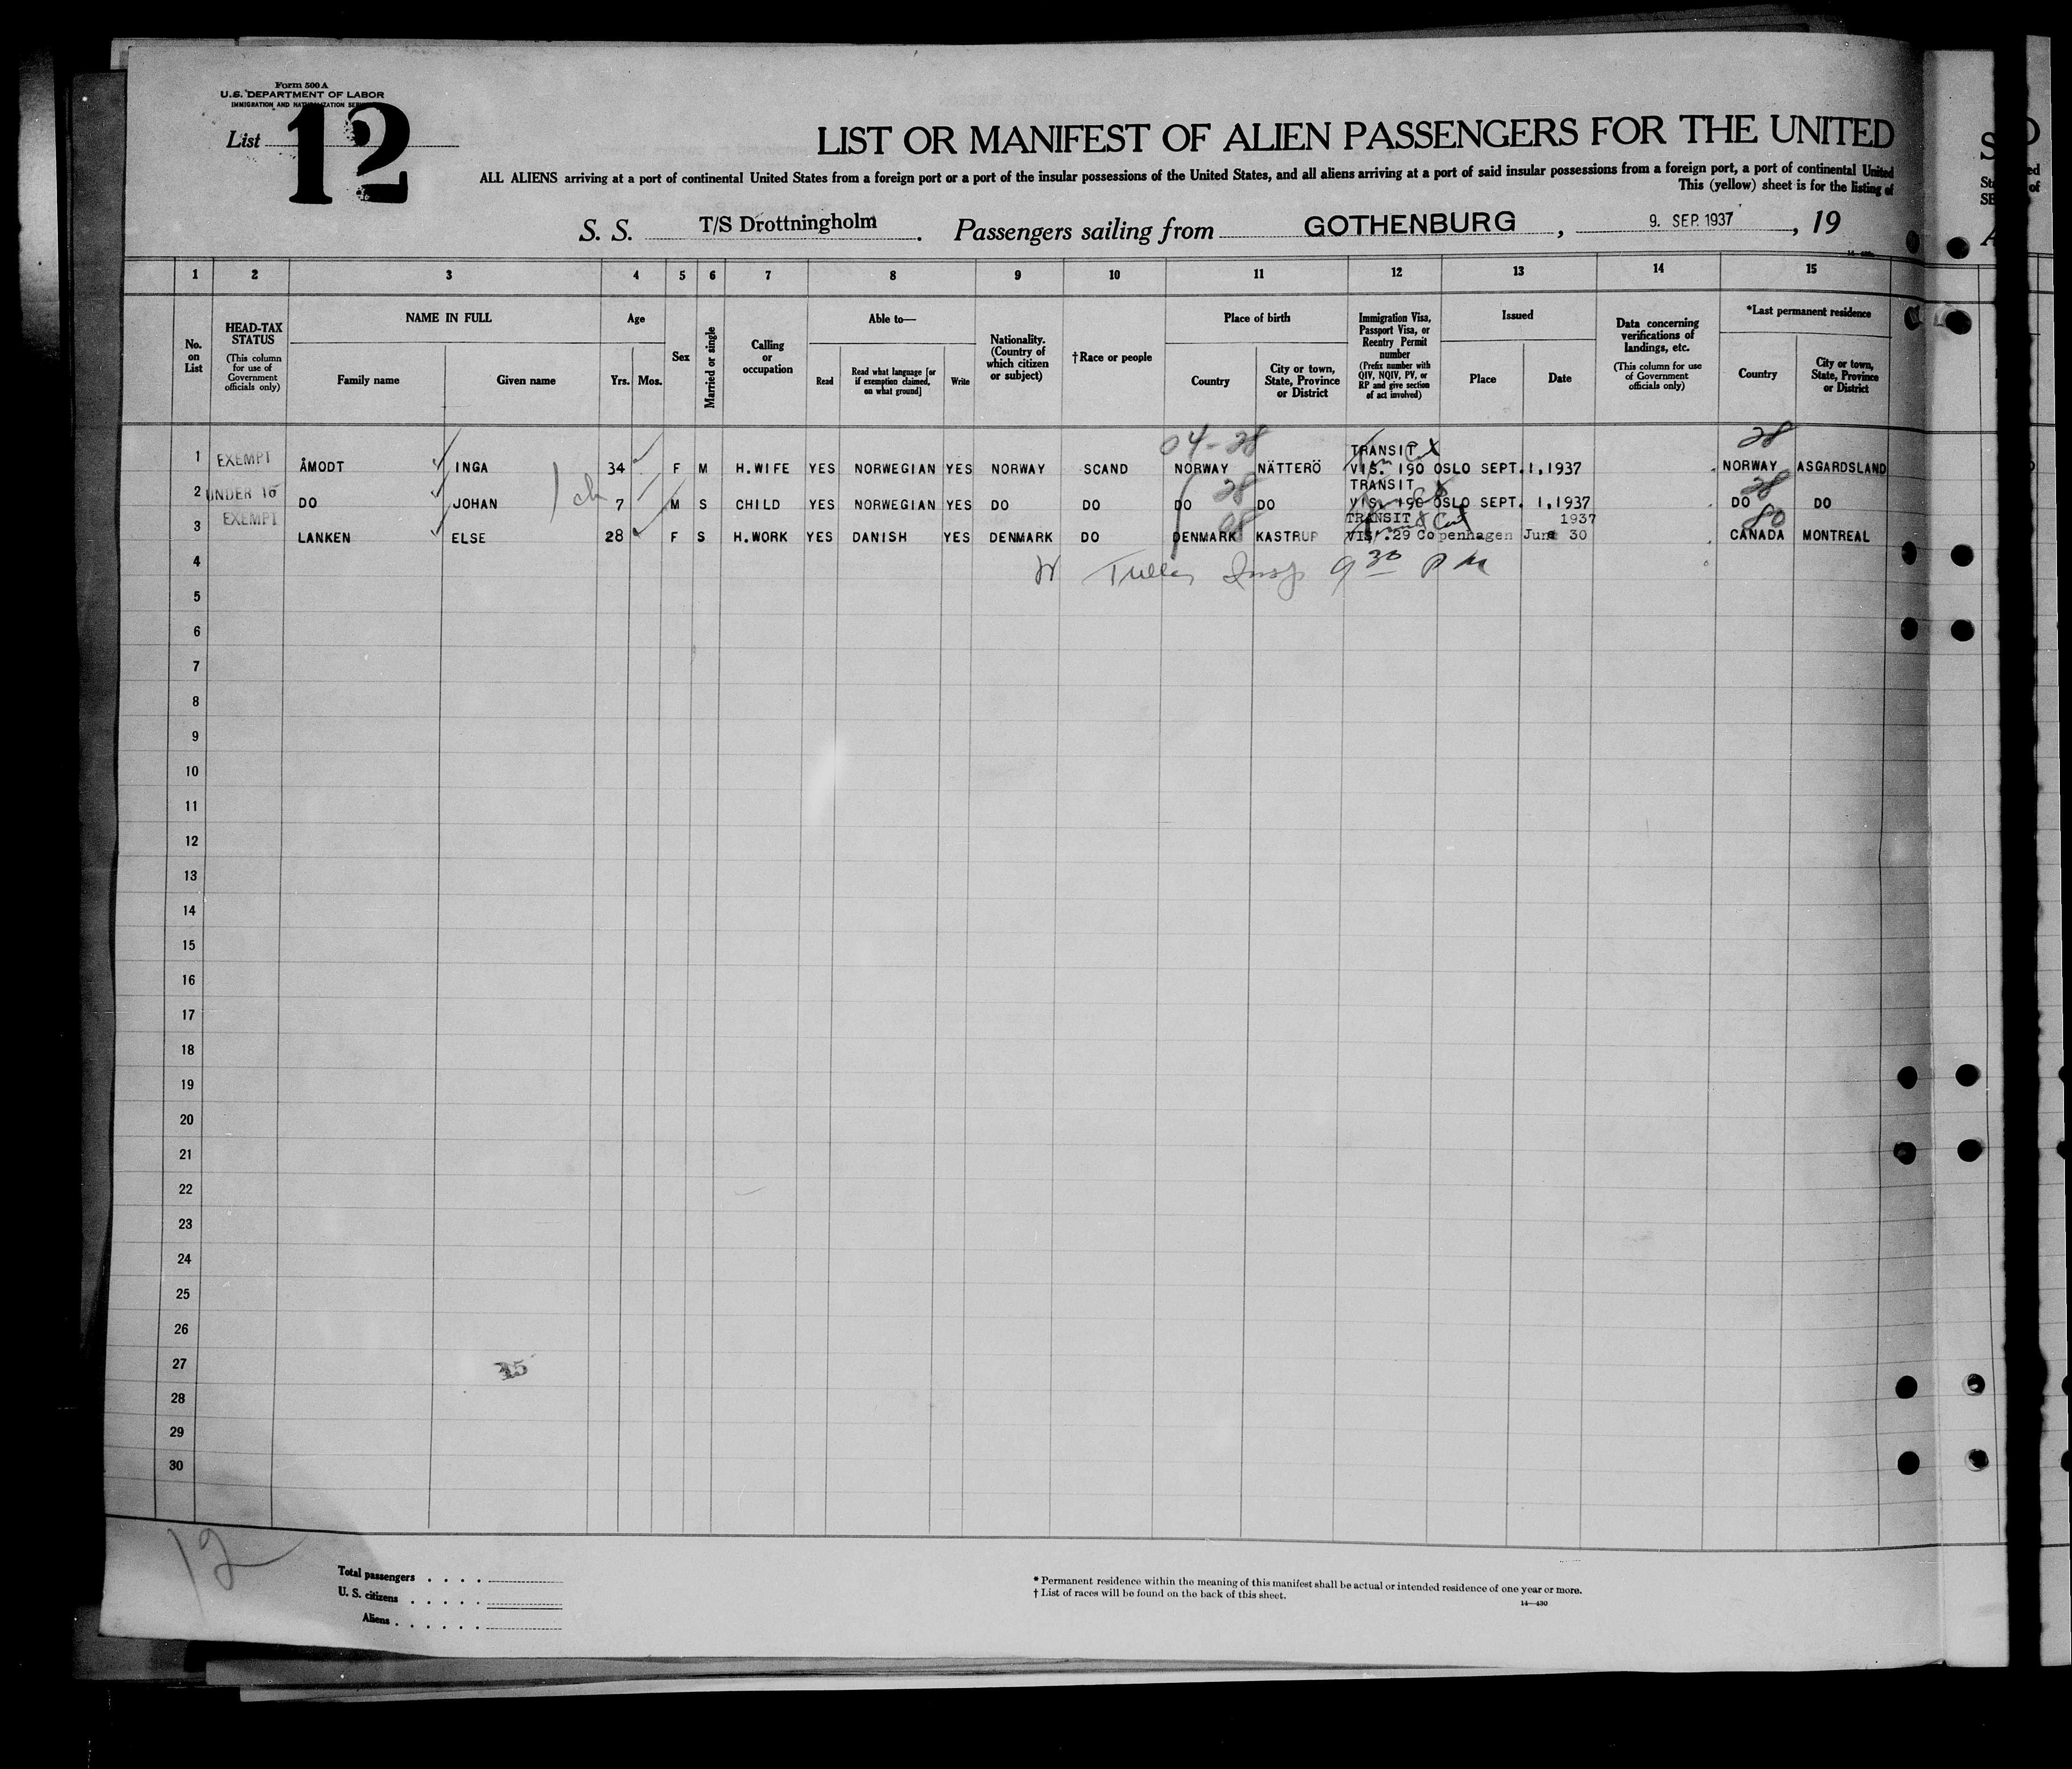 Form 500 A
U.S. DEPARTMENT OF LABOR
IMMIGRATION AND NATURALIZATION SERVICE
List 12
LIST OR MANIFEST OF ALIEN PASSENGERS FOR THE UNITED
ALL ALIENS arriving at a port of continental United States from a foreign port or a port of the insular possessions of the United States, and all aliens arriving at a port of said insular possessions from a foreign port, a port of continental United
This (yellow) sheet is for the listing of
S. S. T/S Drottningholm. Passengers sailing from GOTHENBURG, 9. SEP. 1937, 19
1 2 3 4 5 6 7 8 9 10 11 12 13 14 15
No. on List
HEAD-TAX STATUS (This column for use of Government officials only)
NAME IN FULL
Family name
Given name
Age
Yrs. Mos.
Sex
Married or single
Calling or occupation
Able to—
Read
Read what language [or if exemption claimed, on what ground]
Write
Nationality. (Country of which citizen or subject)
†Race or people
Place of birth
Country
City or town, State, Province or District
Immigration Visa, Passport Visa, or Reentry Permit number (Prefix number with QIV, NQIV, PV, or RP and give section of act involved)
Issued
Place
Date
Data concerning verifications of landings, etc. (This column for use of Government officials only)
*Last permanent residence
Country
City or town, State, Province or District
04-28
28
TRANSIT
1 EXEMPT ÅMODT INGA 34 F M H.WIFE YES NORWEGIAN YES NORWAY SCAND NORWAY NÄTTERÖ VIS. 190 OSLO SEPT.1,1937 NORWAY ASGARDSLAND
28 TRANSIT 28
2 UNDER 16 DO JOHAN ch 7 M S CHILD YES NORWEGIAN YES DO DO DO DO VIS. 190 OSLO SEPT. 1,1937 DO DO
08 TRANSIT 1937 80
3 EXEMPT LANKEN ELSE 28 F S H.WORK YES DANISH YES DENMARK DO DENMARK KASTRUP VIS. 29 Copenhagen June 30 CANADA MONTREAL
4 Insp 9 30 P M
5
6
7
8
9
10
11
12
13
14
15
16
17
18
19
20
21
22
23
24
25
26
27
28
29
30
12
Total passengers
U. S. citizens
Aliens
* Permanent residence within the meaning of this manifest shall be actual or intended residence of one year or more.
† List of races will be found on the back of this sheet.
14—430